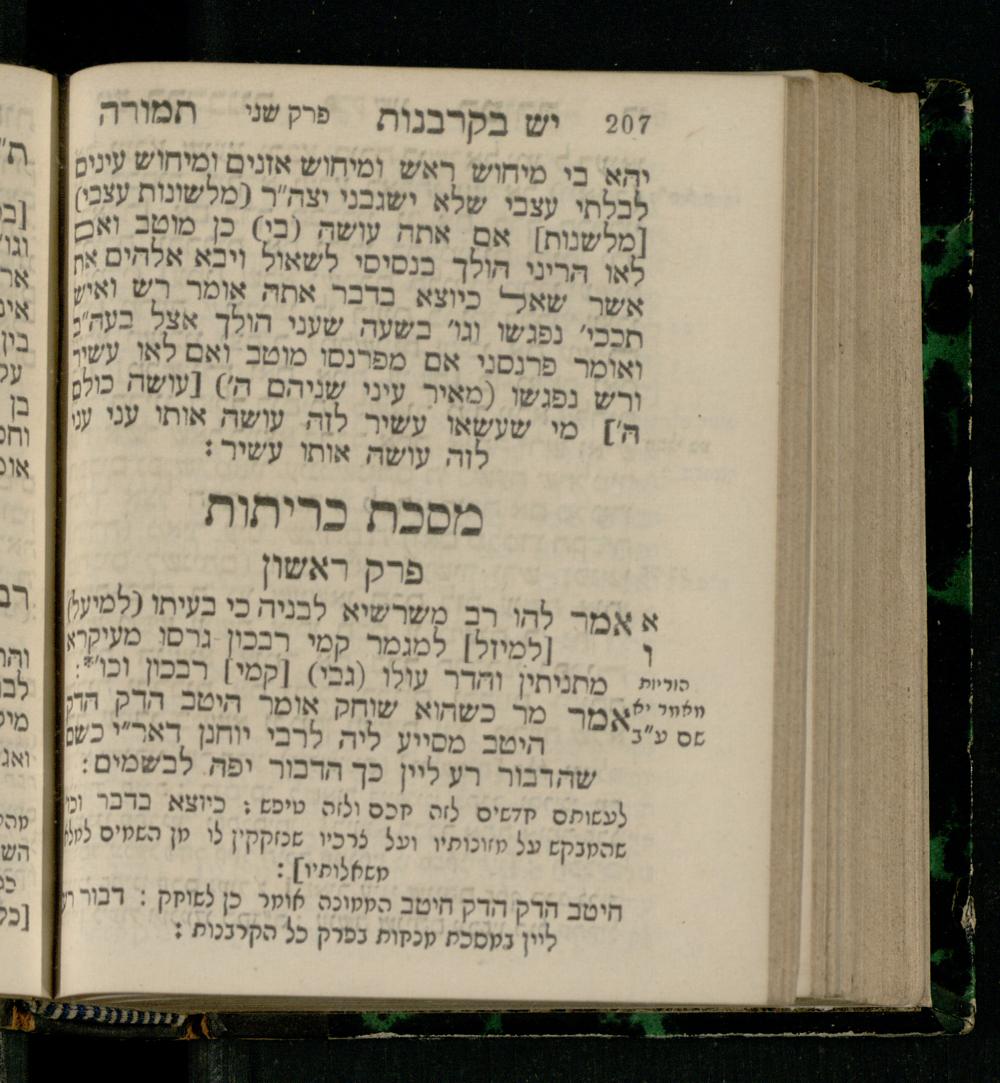 207 יש בקרבנות פרק שני תמורה
יהא בי מיחוש ראש ומיחוש אזנים ומיחוש עינים
לבלתי עצבי שלא ישגבני יצה״ר (מלשונות עצבי)
[מלשנות] אם אתה עושה (בי) כן מוטב ואם
לאו הריני הולך בנסיסי לשאול ויבא אלהים את
אשר שאל כיוצא בדבר אתה אומר רש ואיש
תככי׳ נפגשו וגו׳ בשעה שעני הולך אצל בעה״ב
ואומר פרנסני אם מפרנסו מוטב ואם לאו עשיר
ורש נפגשו (מאיר עיני שניהם ה׳) [עושה כולם
ה׳] מי שעשאו עשיר לזה עושה אותו עני עני
לזה עושה אותו עשיר :
מסכת כריתות
פרק ראשון
א אמר להו רב משרשיא לבניה כי בעיתו (למיעל)
ו [למיזל] למגמר קמי רבכון גרסו מעיקרא
הוריות מתניתין והדר עולו (גבי) [קמי] רבכון וכו׳*:
מאמר יא אמר מר כשהוא שוחק אומר היטב הדק הדק
שם ע״ב היטב מסייע ליה לרבי יוחנן דאר״י כשם
שהדבור רע ליין כך הדבור יפה לבשמים :
לעשותם חדשים לזה חכם ולזה טיפש ; כיוצא בדבר וכו׳
שהמבקש על מזונותיו ועל צרכיו שנזקקין לו מן השמים למלא
משאלותיו] :
היטב הדק הדק היטב הממונה אומר כן לשוחק : דבור רע
ליין במסכת מנחות בפרק כל הקרבנות :
ת״
[ב
וגו׳
אר
אינ
בין
על
בן
וחכ
או
רב
והר
לבנ
מיל
ואנ
מה
הש
כב
[כל